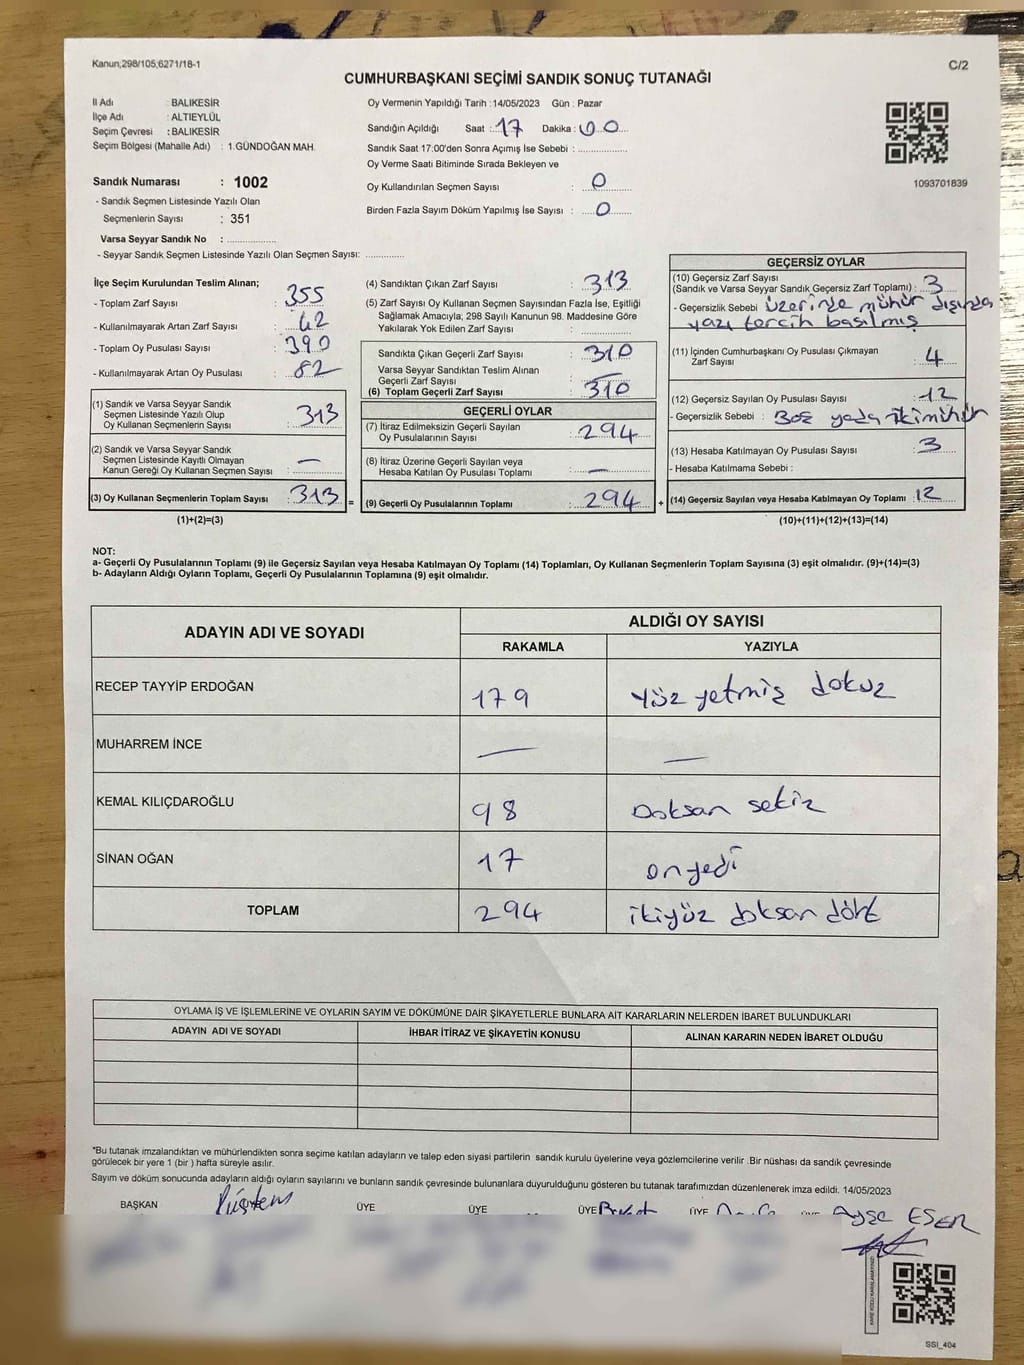 Kanun;298/105;6271/18-1
C/2
CUMHURBAŞKANI SEÇİMİ SANDIK SONUÇ TUTANAĞI
İl Adı : BALIKESİR
İlçe Adı : ALTIEYLÜL
Seçim Çevresi : BALIKESİR
Seçim Bölgesi (Mahalle Adı) : 1.GÜNDOĞAN MAH.
Sandık Numarası : 1002
- Sandık Seçmen Listesinde Yazılı Olan
Seçmenlerin Sayısı : 351
Varsa Seyyar Sandık No : ................
- Seyyar Sandık Seçmen Listesinde Yazılı Olan Seçmen Sayısı: .............
Oy Vermenin Yapıldığı Tarih :14/05/2023 Gün : Pazar
Sandığın Açıldığı Saat : 17 Dakika : 00
Sandık Saat 17:00'den Sonra Açımış İse Sebebi : ................
Oy Verme Saati Bitiminde Sırada Bekleyen ve
Oy Kullandırılan Seçmen Sayısı : 0
Birden Fazla Sayım Döküm Yapılmış İse Sayısı : 0
1093701839
İlçe Seçim Kurulundan Teslim Alınan;
- Toplam Zarf Sayısı : 355
- Kullanılmayarak Artan Zarf Sayısı : 42
- Toplam Oy Pusulası Sayısı : 390
- Kullanılmayarak Artan Oy Pusulası : 82
(1) Sandık ve Varsa Seyyar Sandık
Seçmen Listesinde Yazılı Olup
Oy Kullanan Seçmenlerin Sayısı : 313
(2) Sandık ve Varsa Seyyar Sandık
Seçmen Listesinde Kayıtlı Olmayan
Kanun Gereği Oy Kullanan Seçmen Sayısı : —
(3) Oy Kullanan Seçmenlerin Toplam Sayısı : 313 =
(1)+(2)=(3)
(4) Sandıktan Çıkan Zarf Sayısı : 313
(5) Zarf Sayısı Oy Kullanan Seçmen Sayısından Fazla İse, Eşitliği
Sağlamak Amacıyla, 298 Sayılı Kanunun 98. Maddesine Göre
Yakılarak Yok Edilen Zarf Sayısı : ................
Sandıkta Çıkan Geçerli Zarf Sayısı : 310
Varsa Seyyar Sandıktan Teslim Alınan
Geçerli Zarf Sayısı : —
(6) Toplam Geçerli Zarf Sayısı : 310
GEÇERLİ OYLAR
(7) İtiraz Edilmeksizin Geçerli Sayılan
Oy Pusulalarının Sayısı : 294
(8) İtiraz Üzerine Geçerli Sayılan veya
Hesaba Katılan Oy Pusulası Toplamı : —
(9) Geçerli Oy Pusulalarının Toplamı : 294 +
GEÇERSİZ OYLAR
(10) Geçersiz Zarf Sayısı
(Sandık ve Varsa Seyyar Sandık Geçersiz Zarf Toplamı) : 3
- Geçersizlik Sebebi : Üzerinde mühür dışında
yazı tercih basılmış
(11) İçinden Cumhurbaşkanı Oy Pusulası Çıkmayan
Zarf Sayısı : 4
(12) Geçersiz Sayılan Oy Pusulası Sayısı : 12
- Geçersizlik Sebebi : Boş yada iki mühür
(13) Hesaba Katılmayan Oy Pusulası Sayısı : 3
- Hesaba Katılmama Sebebi :
(14) Geçersiz Sayılan veya Hesaba Katılmayan Oy Toplamı : 12
(10)+(11)+(12)+(13)=(14)
NOT:
a- Geçerli Oy Pusulalarının Toplamı (9) ile Geçersiz Sayılan veya Hesaba Katılmayan Oy Toplamı (14) Toplamları, Oy Kullanan Seçmenlerin Toplam Sayısına (3) eşit olmalıdır. (9)+(14)=(3)
b- Adayların Aldığı Oyların Toplamı, Geçerli Oy Pusulalarının Toplamına (9) eşit olmalıdır.
ADAYIN ADI VE SOYADI
ALDIĞI OY SAYISI
RAKAMLA YAZIYLA
RECEP TAYYİP ERDOĞAN 179 yüz yetmiş dokuz
MUHARREM İNCE — —
KEMAL KILIÇDAROĞLU 98 Doksan sekiz
SİNAN OĞAN 17 onyedi
TOPLAM 294 ikiyüz doksan dört
OYLAMA İŞ VE İŞLEMLERİNE VE OYLARIN SAYIM VE DÖKÜMÜNE DAİR ŞİKAYETLERLE BUNLARA AİT KARARLARIN NELERDEN İBARET BULUNDUKLARI
ADAYIN ADI VE SOYADI İHBAR İTİRAZ VE ŞİKAYETİN KONUSU ALINAN KARARIN NEDEN İBARET OLDUĞU
*Bu tutanak imzalandıktan ve mühürlendikten sonra seçime katılan adayların ve talep eden siyasi partilerin sandık kurulu üyelerine veya gözlemcilerine verilir .Bir nüshası da sandık çevresinde
görülecek bir yere 1 (bir ) hafta süreyle asılır.
Sayım ve döküm sonucunda adayların aldığı oyların sayılarını ve bunların sandık çevresinde bulunanlara duyurulduğunu gösteren bu tutanak tarafımızdan düzenlenerek imza edildi. 14/05/2023
BAŞKAN ÜYE ÜYE ÜYE ÜYE Ayşe ESER
SSI_404